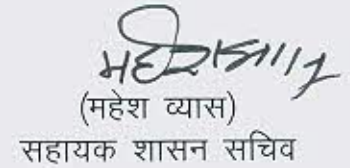 (महेश व्यास)
सहायक शासन सचिव